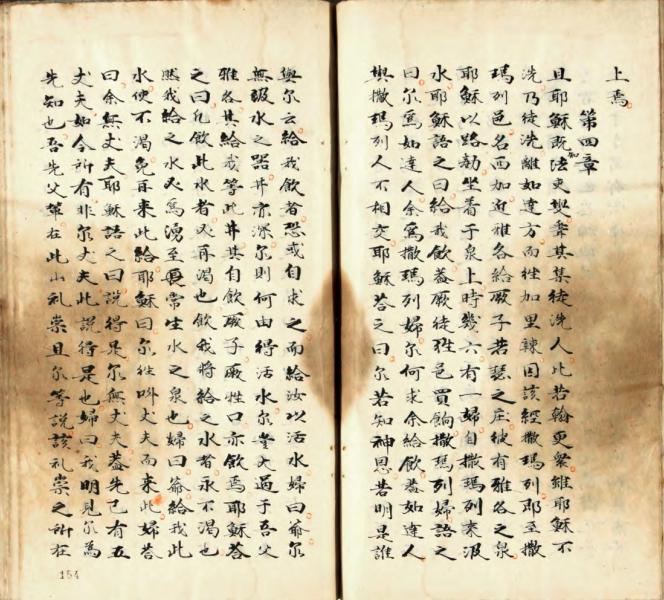 上焉
第四章
且耶穌既知法吏其集徒洗人比若翰更衆雖耶穌不
洗乃徒洗離如達方而徃加里辣因該經撒瑪列即至撒
瑪列邑名西加近雅各給厥子若瑟之庄彼有雅各之泉
耶穌以路勞坐着于泉上時幾六有一婦自撒瑪列来汲
水耶穌語之曰給我飲葢厥徒徃邑買餉撒瑪列婦語之
曰尔為如達人余為撒瑪列婦尔何求余給飲葢如達人
與撒瑪列人不相交耶穌荅之曰尔若知神恩若明是誰
與尔云給我飲者恐或自求之而給汝以活水婦曰爺尔
無汲水之器井亦深尔則何由得活水尔豈大過于吾父
雅各其給我等此井其自飲厥子厥牲口亦飲焉耶穌荅
之曰凡飲此水者又再渴也飲我將給之水者永不渴也
然我給之水為湧至常生水之泉也婦曰爺給我此
水使不渴免再来此給耶穌曰尔徃呌丈夫而来此婦荅
曰余無丈夫耶穌語之曰說得是尔無丈夫葢先已有五
丈夫如今所有非尔丈夫此說得是也婦曰我明見尔為
先知也吾先父軰在此山礼崇且尔等說該礼崇之所在
154